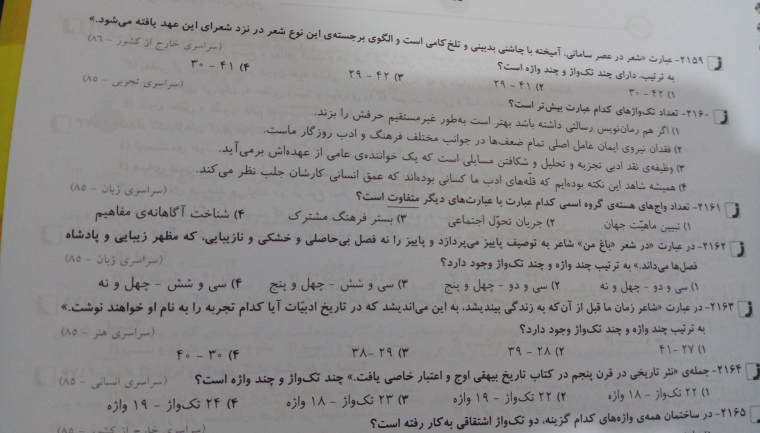 ۲۱۵۹- عبارت «شعر در عصر سامانی، آمیخته با چاشنی بدبینی و تلخ‌کامی است و الگوی برجسته‌ی این نوع شعر در نزد شعرای این عهد یافته می‌شود.»
به ترتیب، دارای چند تک‌واژ و چند واژه است؟ (سراسری خارج از کشور - ۸۶)
۱) ۴۲ - ۳۰ ۲) ۴۱ - ۲۹ ۳) ۴۲ - ۲۹ ۴) ۴۱ - ۳۰
۲۱۶۰- تعداد تک‌واژهای کدام عبارت بیش‌تر است؟ (سراسری تجربی - ۸۵)
۱) اگر هم رمان‌نویس رسالتی داشته باشد بهتر است به‌طور غیرمستقیم حرفش را بزند.
۲) فقدان نیروی ایمان عامل اصلی تمام ضعف‌ها در جوانب مختلف فرهنگ و ادب روزگار ماست.
۳) وظیفه‌ی نقد ادبی تجزیه و تحلیل و شکافتن مسایلی است که یک خواننده‌ی عامی از عهده‌اش برمی‌آید.
۴) همیشه شاهد این نکته بوده‌ایم که قلّه‌های ادب ما کسانی بوده‌اند که عمق انسانی کارشان جلب نظر می‌کند.
۲۱۶۱- تعداد واج‌های هسته‌ی گروه اسمی کدام عبارت با عبارت‌های دیگر متفاوت است؟ (سراسری زبان - ۸۵)
۱) تبیین ماهیّت جهان ۲) جریان تحوّل اجتماعی ۳) بستر فرهنگ مشترک ۴) شناخت آگاهانه‌ی مفاهیم
۲۱۶۲- در عبارت «در شعر «باغ من» شاعر به توصیف پاییز می‌پردازد و پاییز را نه فصل بی‌حاصلی و خشکی و نازیبایی، که مظهر زیبایی و پادشاه
فصل‌ها می‌داند.» به ترتیب چند واژه و چند تک‌واژ وجود دارد؟ (سراسری زبان - ۸۵)
۱) سی و دو - چهل و نه ۲) سی و دو - چهل و پنج ۳) سی و شش - چهل و پنج ۴) سی و شش - چهل و نه
۲۱۶۳- در عبارت «شاعر زمان ما قبل از آن‌که به زندگی بیندیشد، به این می‌اندیشد که در تاریخ ادبیّات آیا کدام تجربه را به نام او خواهند نوشت.»
به ترتیب چند واژه و چند تک‌واژ وجود دارد؟ (سراسری هنر - ۸۵)
۱) ۲۷ - ۴۱ ۲) ۲۸ - ۳۹ ۳) ۲۹ - ۳۸ ۴) ۳۰ - ۴۰
۲۱۶۴- جمله‌ی «نثر تاریخی در قرن پنجم در کتاب تاریخ بیهقی اوج و اعتبار خاصی یافت.» چند تک‌واژ و چند واژه است؟ (سراسری انسانی - ۸۵)
۱) ۲۲ تک‌واژ - ۱۸ واژه ۲) ۲۲ تک‌واژ - ۱۹ واژه ۳) ۲۳ تک‌واژ - ۱۸ واژه ۴) ۲۴ تک‌واژ - ۱۹ واژه
۲۱۶۵- در ساختمان همه‌ی واژه‌های کدام گزینه، دو تک‌واژ اشتقاقی به‌کار رفته است؟ (سراسری خارج از کشور - ۸۵)